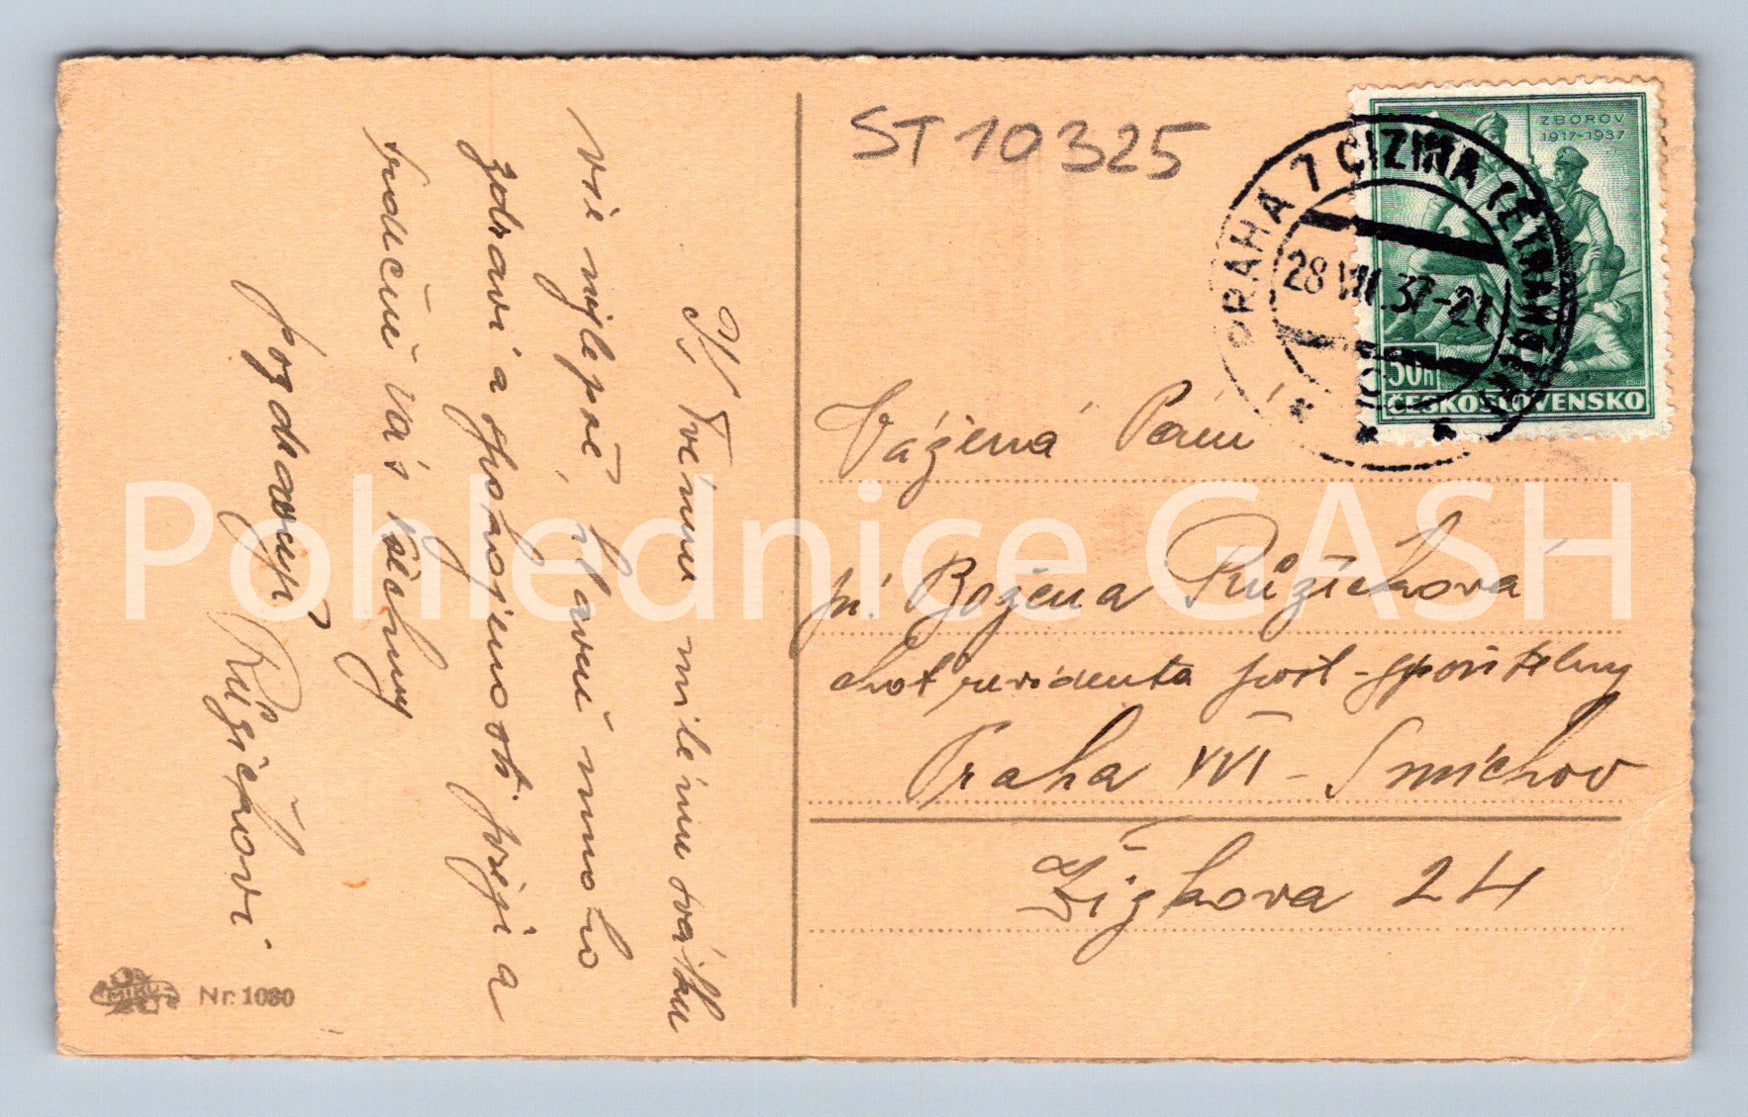 K Tvému milému svátku
vše nejlepší, hlavně mnoho
zdraví a spokojenosti přeji a
srdečně Vás všechny
pozdravují
Růžičkovi
MIKU
Nr. 1080
ST 10325
ZBOROV
1917-1937
50h
ČESKOSLOVENSKO
PRAHA 7 CIZINA
28 VII.37-21
Vážená Paní
pí. Božena Růžičková
choť revidenta pošt. spořitelny
Praha XVI - Smíchov
Žižkova 24
Pohlednice GASH